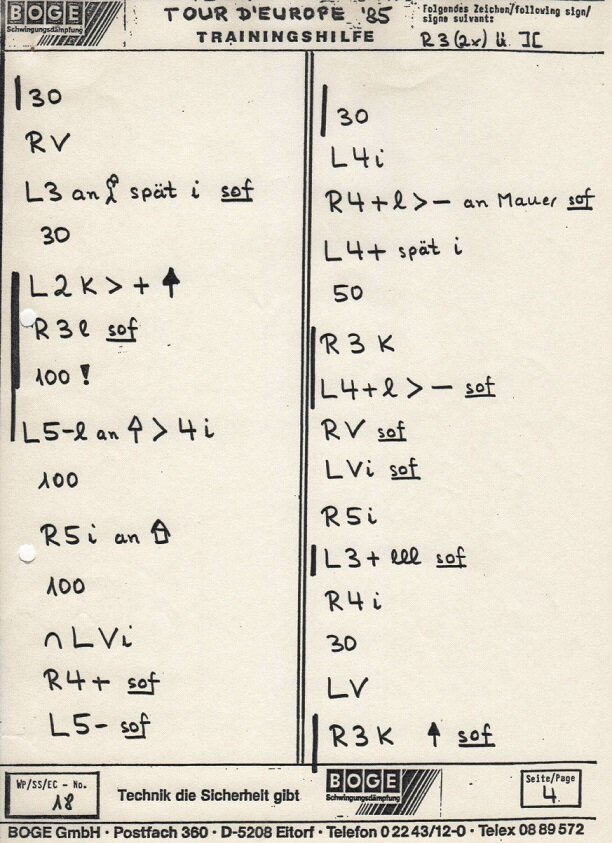 BOGE
Schwingungsdämpfung
TOUR D'EUROPE '85
TRAININGSHILFE
Folgendes Zeichen/following sign/
signe suivant:
R3(2x) ü. JC
30
RV
L3 an spät i sof
30
L2 K > + ↑
R3l sof
100 !
L5-l an ↑ > 4i
100
R5i an ⇧
100
∩ LVi
R4+ sof
L5- sof
30
L4i
R4+l > - an Mauer sof
L4+ spät i
50
R3 K
L4+l > - sof
RV sof
LVi sof
R5i
L3+ lll sof
R4i
30
LV
R3K ↑ sof
WP/SS/EC - No.
18
Technik die Sicherheit gibt
BOGE
Schwingungsdämpfung
Seite/Page
4
BOGE GmbH · Postfach 360 · D-5208 Eitorf · Telefon 0 22 43/12-0 · Telex 08 89 572